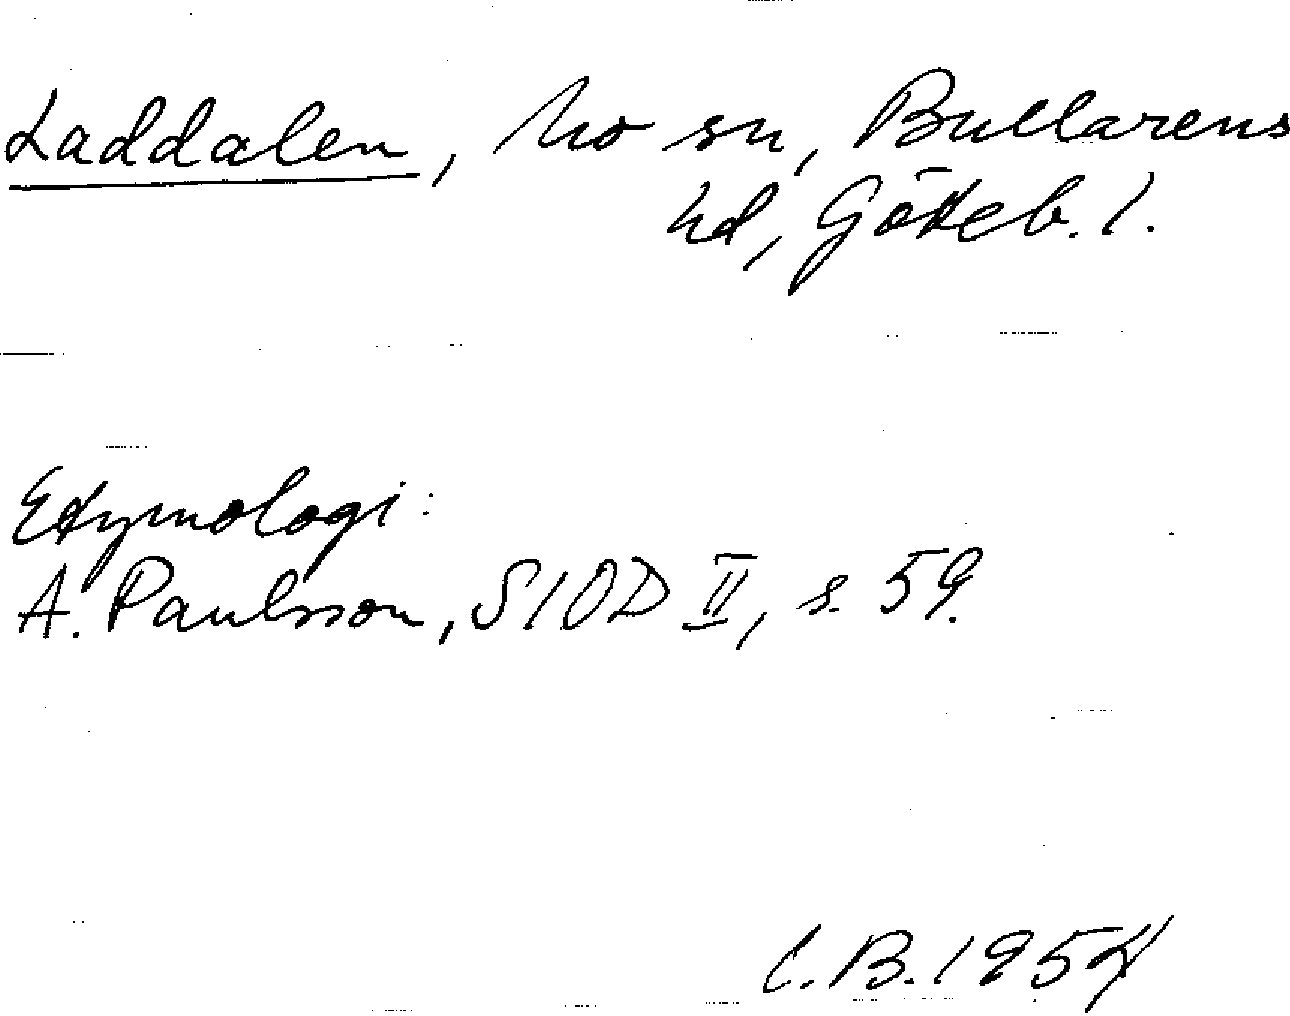 Laddalen, Mo sn, Bullarens
hd, Göteb. l.
Etymologi:
A. Paulsson, SIOD II, s. 59.
C.B. 1954